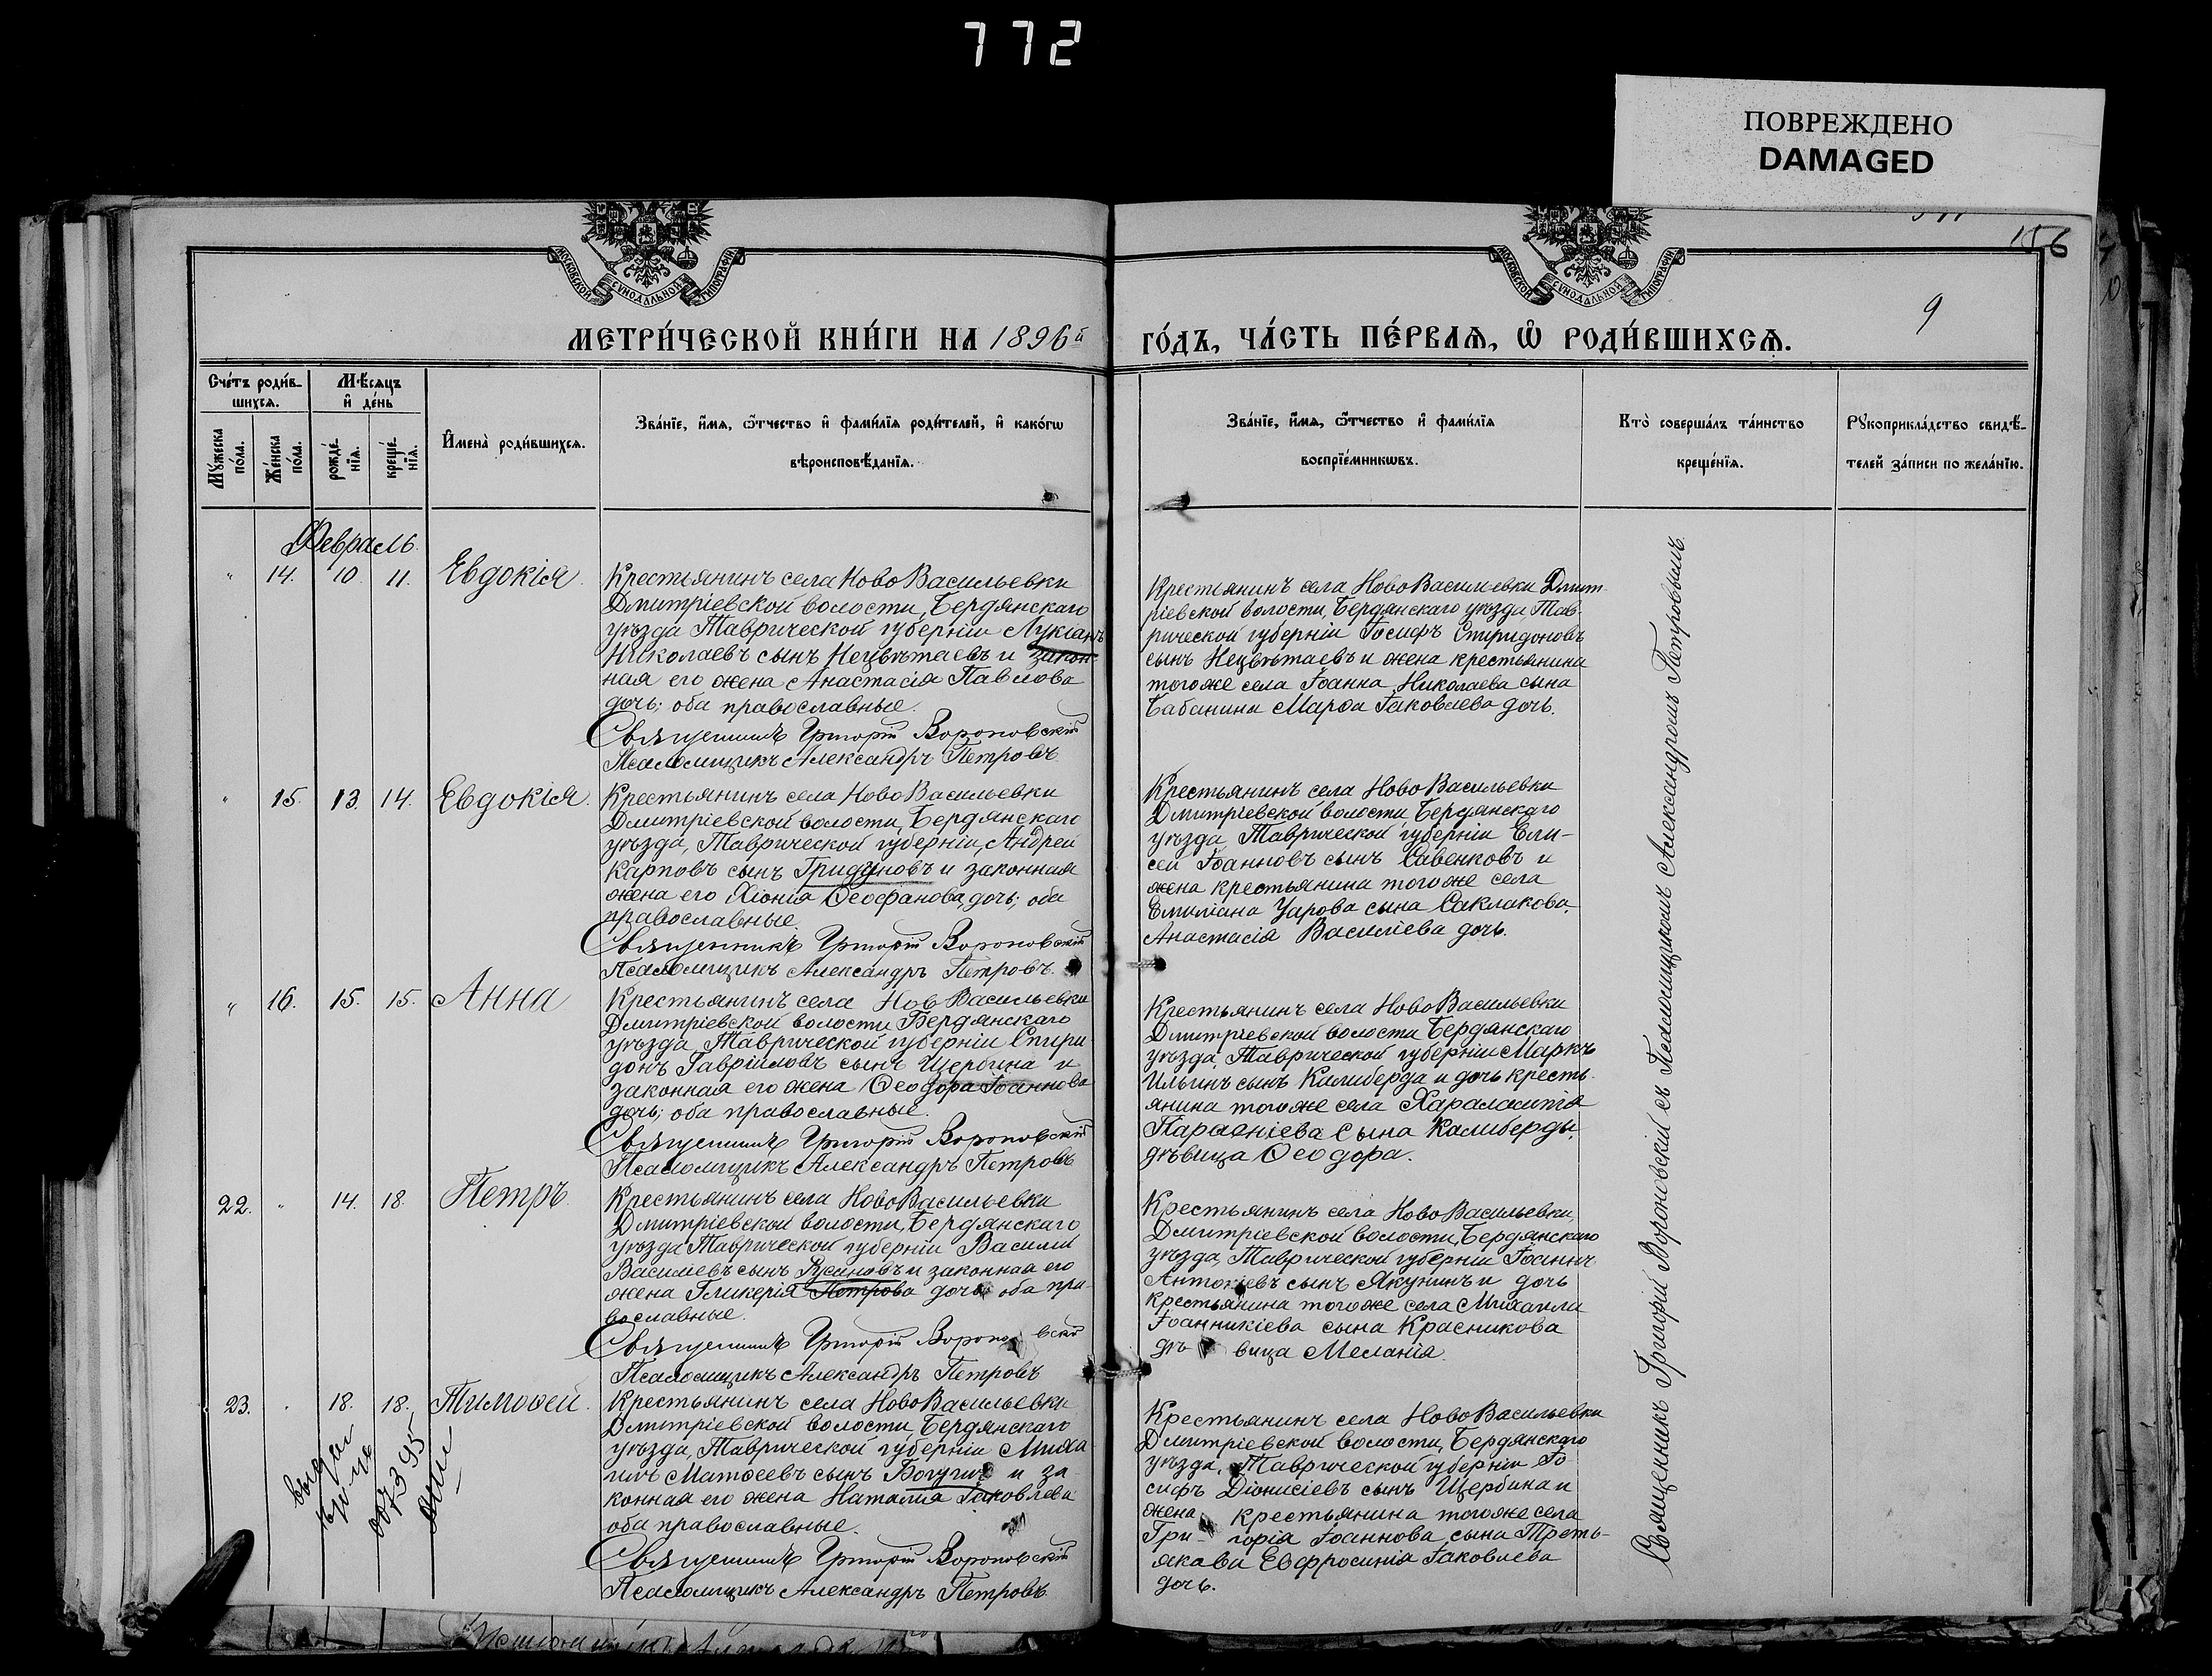 772
ПОВРЕЖДЕНО
DAMAGED
156
9
МОСКОВСКОЙ СѴНОДАЛЬНОЙ ТИПОГРАФІИ
МОСКОВСКОЙ СѴНОДАЛЬНОЙ ТИПОГРАФІИ
МЕТРИ́ЧЕСКОЙ КНИ́ГИ НА 1896й
ГО́ДЪ, ЧА́СТЬ ПЕ́РВАѦ, Ѽ РОДИ́ВШИХСѦ.
Сче́тъ роди́в-
шихсѧ.
Мѣ́сяцъ
и҆ де́нь
Мꙋ́жеска
по́ла.
Же́нска
по́ла.
рожде́-
нїѧ.
креще́-
нїѧ.
И҆мена̀ роди́вшихсѧ.
Зва́нїе, и҆́мѧ, ѻ҆́тчество и҆ фами́лїѧ роди́телей, и҆ како́гѡ
вѣроисповѣ́данїѧ.
Зва́нїе, и҆́мѧ, ѻ҆́тчество и҆ фами́лїѧ
воспрїе́мникѡвъ.
Кто̀ соверша́лъ та́инство
креще́нїѧ.
Рꙋкоприкла́дство свидѣ́-
телей за́писи по жела́нїю.
Февраль
" 14. 10 11. Евдокія.
Крестьянинъ села НовоВасильевки
Дмитріевской волости, Бердянскаго
уѣзда Таврической губерніи Лукіанъ
Николаевъ сынъ Нецвѣтаевъ и закон-
ная его жена Анастасія Павлова
дочь; оба православные.
Священникъ Григорій Вороновскій
Псаломщикъ Александръ Петровъ
Крестьянинъ села НовоВасильевки Дмит
ріевской волости, Бердянскаго уѣзда, Тав-
рической губерніи Іосифъ Спиридоновъ
сынъ Нецвѣтаевъ и жена крестьянина
тогоже села Іоанна Николаева сына
Бабанина Марѳа Іаковлева дочь.
" 15. 13. 14. Евдокія.
Крестьянинъ села НовоВасильевки
Дмитріевской волости, Бердянскаго
уѣзда, Таврической губерніи, Андрей
Карповъ сынъ Гридуновъ и законная
жена его Хіонія Ѳеофанова, дочь; оба
православные.
Священникъ Григорій Вороновскій
Псаломщикъ Александръ Петровъ.
Крестьянинъ села НовоВасильевки
Дмитріевской волости, Бердянскаго
уѣзда, Таврической губерніи Ели-
сей Іоанновъ сынъ Савенковъ и
жена крестьянина тогоже села
Емиліана Уарова сына Саклакова,
Анастасія Василіева дочь.
" 16. 15. 15. Анна
Крестьянинъ села Нов Васильевки
Дмитріевской волости Бердянскаго
уѣзда Таврической губерніи Спири
донъ Гавріиловъ сынъ Щербина и
законная его жена Ѳеодора Іоаннова
дочь; оба православные.
Священникъ Григорій Вороновскій
Псаломщикъ Александръ Петровъ
Крестьянинъ села НовоВасильевки
Дмитріевской волости Бердянскаго
уѣзда, Таврической губерніи Маркъ
Ильинъ сынъ Калиберда и дочь кресть-
янина тогоже села Харалампія
Парѳеніева сына Калиберды,
дѣвица Ѳеодора.
22. " 14. 18. Петръ.
Крестьянинъ села НовоВасильевки
Дмитріевской волости, Бердянскаго
уѣзда Таврической губерніи Василій
Василіевъ сынъ Русановъ и законная его
жена Гликерія Петрова дочь оба пра-
вославные.
Священникъ Григорій Вороновскій
Псаломщикъ Александръ Петровъ
Крестьянинъ села НовоВасильевки,
Дмитріевской волости, Бердянскаго
уѣзда, Таврической губерніи Іоаннъ
Антоніевъ сынъ Якунинъ и дочь
крестьянина тогоже села Михаила
Іоанникіева сына Красникова
дѣвица Меланія.
23. " 18. 18. Тимоѳей.
Крестьянинъ села НовоВасильевки
Дмитріевской волости Бердянскаго
уѣзда, Таврической губерніи Миха
илъ Матѳеевъ сынъ и за
конная его жена Наталія Іаковлева
оба православные.
Священникъ Григорій Вороновскій
Псаломщикъ Александръ Петровъ
Крестьянинъ села НовоВасильевки
Дмитріевской волости, Бердянскаго
уѣзда, Таврической губерніи Іо
сифъ Діонисіевъ сынъ Щербина и
жена крестьянина тогоже села
Гри- горія Іоаннова сына Треть-
якова Евфросинія Іаковлева
дочь.
Священникъ Григорій Вороновскій съ Псаломщикомъ Александромъ Петровымъ.